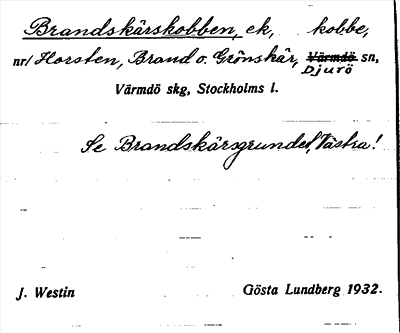 Brandskärskobben, ek, kobbe,
nr/ Horsten, Brand o. Grönskär, Värmdö sn,
Djurö
Värmdö skg, Stockholms l.
Se Brandskärsgrundet, Västra!
J. Westin Gösta Lundberg 1932.